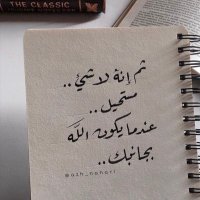 THE CLASSIC
ثم إنهُ لا شيء ..
مستحيل ..
عندما يكون اللّه
بجانبك ..
@azh_nohari